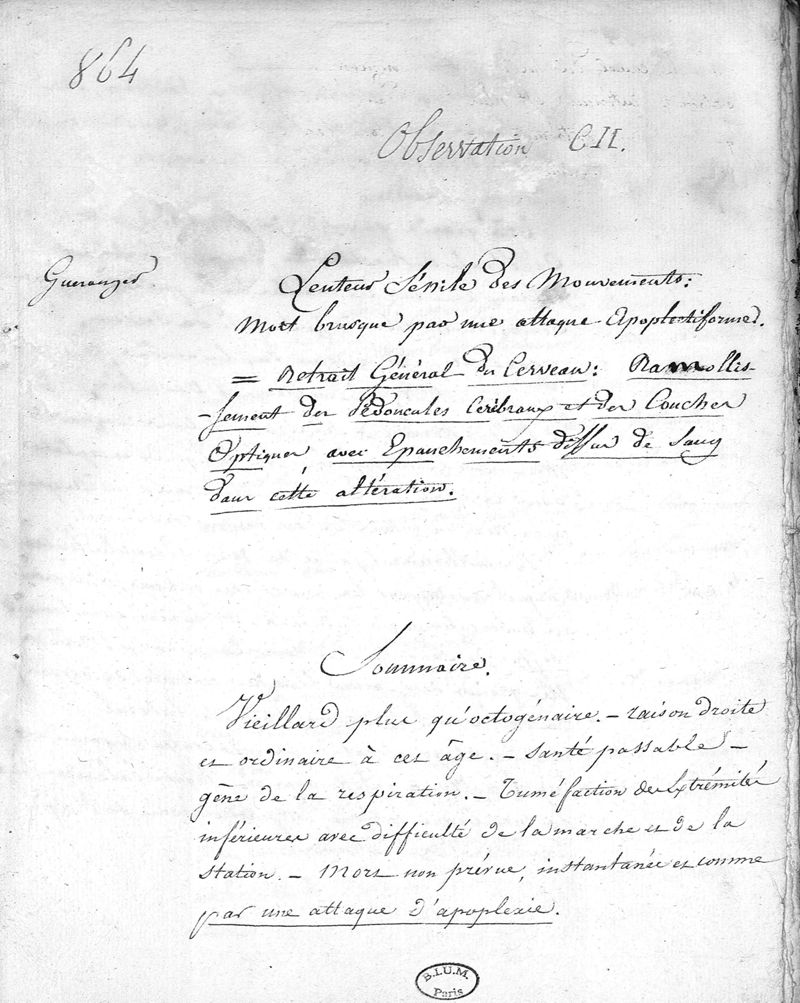 864
Observation CII.
Gueranger
Lenteur Sénile des Mouvements:
Mort brusque par une attaque Apoplectiforme.
= Retrait Général du Cerveau: Ramollis-
-sement des Pédoncules Cérébraux et des Couches
Optiques avec Epanchements diffus de Sang
dans cette altération.
Sommaire.
Vieillard plus qu'octogénaire. – raison droite
et ordinaire à cet âge. – Santé passable –
gêne de la respiration. – Tuméfaction des Extrémités
inférieures avec difficulté de la marche et de la
station. – Mort non prévue, instantanée et comme
par une attaque d'apoplexie.
B.I.U.M.
Paris